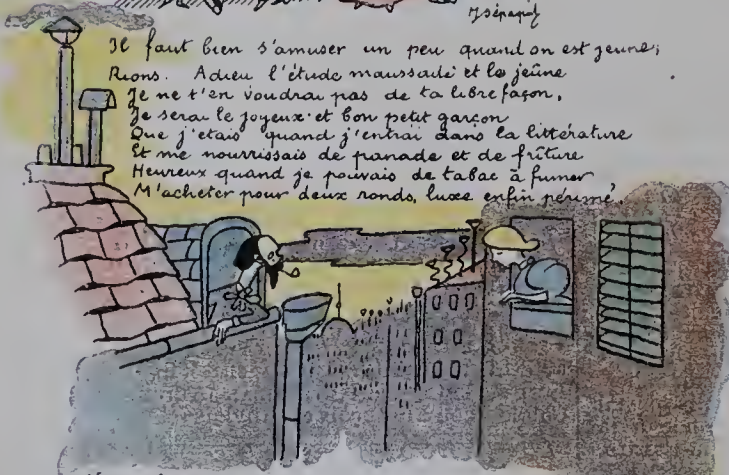 Il faut bien s'amuser un peu quand on est jeune;
Rions. Adieu l'étude maussade et le jeûne
Je ne t'en voudrai pas de ta libre façon,
Je serai le joyeux et bon petit garçon
Que j'étais quand j'entrai dans la littérature
Et me nourrissais de panade et de friture
Heureux quand je pouvais de tabac à fumer
M'acheter pour deux ronds, luxe enfin périmé.